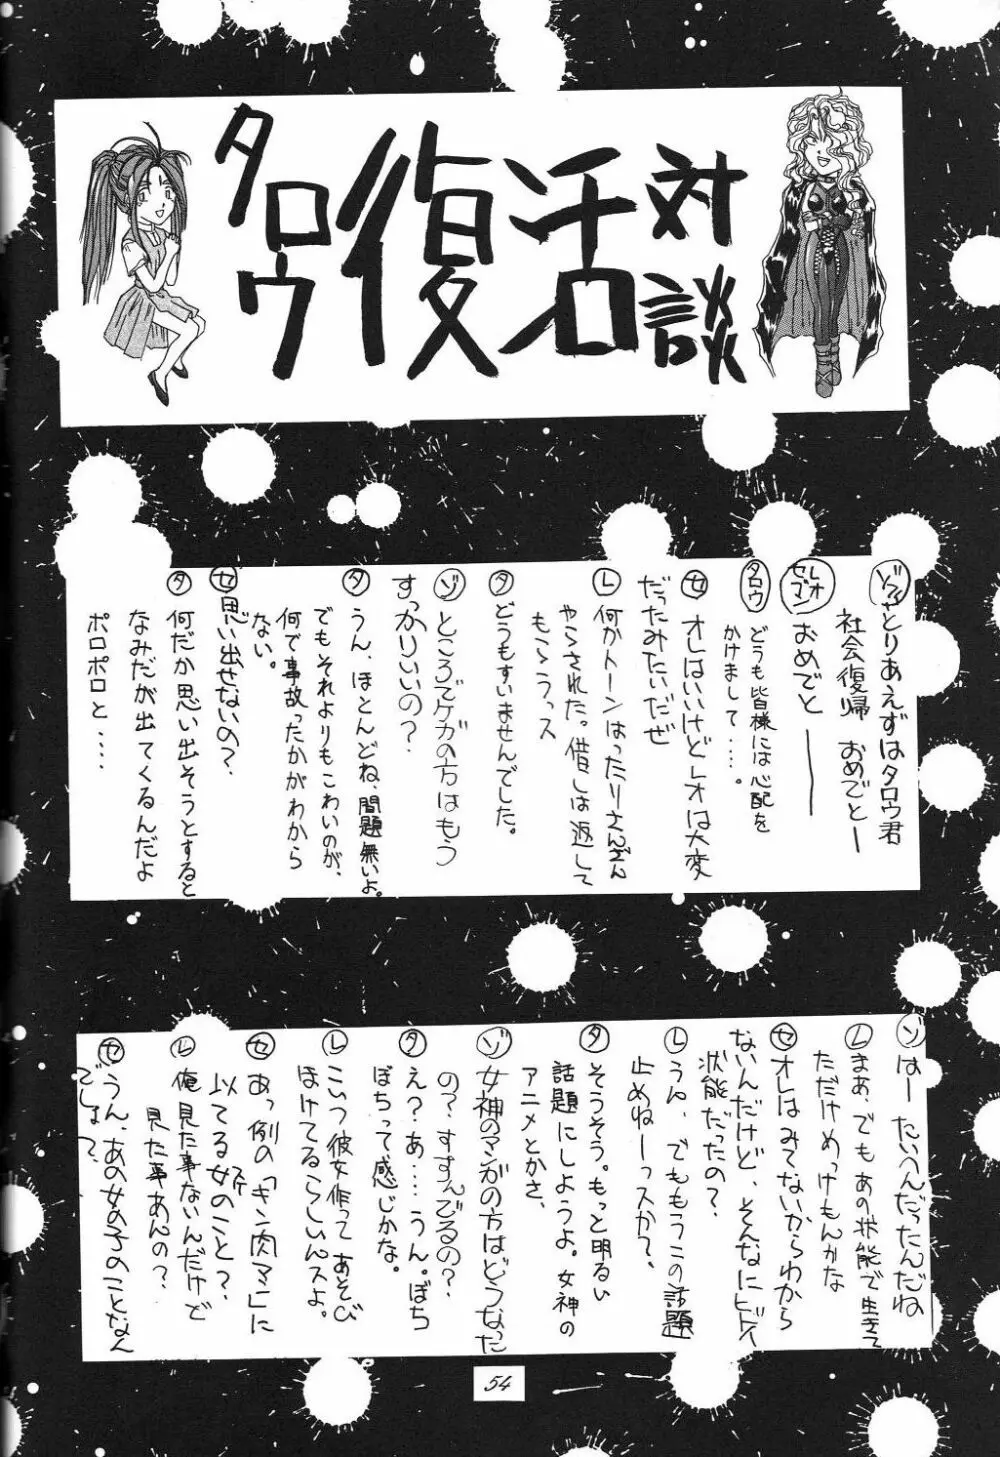 タロウ復活対談
ゾイとりあえずはタロウ君
社会復帰 おめでとー
レオ
セブマン
おめでとーーー
タロウ どうも皆様には心配を
かけまして・・・・。
セ オレはいいけどレオは大変
だったみたいだぜ
レ 何かトーンはったりさんざん
やらされた。借しは返して
もらうっス
タ どうもすいませんでした。
ゾ ところでケガの方はもう
すっかりいいの?
タ うん、ほとんどね、問題無いよ。
でもそれよりもこわいのが、
何で事故ったかがわから
ない。
セ 思い出せないの?
タ 何だか思い出そうとすると
なみだが出てくるんだよ
ポロポロと・・・・
ゾ はーたいへんだったんだね
レ まあ、でもあの状態で生きて
ただけめっけもんかな
セ オレはみてないからわから
ないんだけど、そんなにヒドイ
状態だったの?
レ うん、でももうこの話題
止めねーっスか?
タ そうそう。もっと明るい
話題にしようよ。女神の
アニメとかさ、
ゾ 女神のマンガの方はどうなった
の?すすんでるの?
タ え?あ・・・・うん。ぼち
ぼちって感じかな。
レ こいつ彼女作って あそび
ほけてるらしいんスよ。
セ あっ例の「キン肉マン」に
以てる女のこと?
レ 俺見た事ないんだけど
見た事あんの?
セ うん、あの女の子のことなん
でしょ?
54